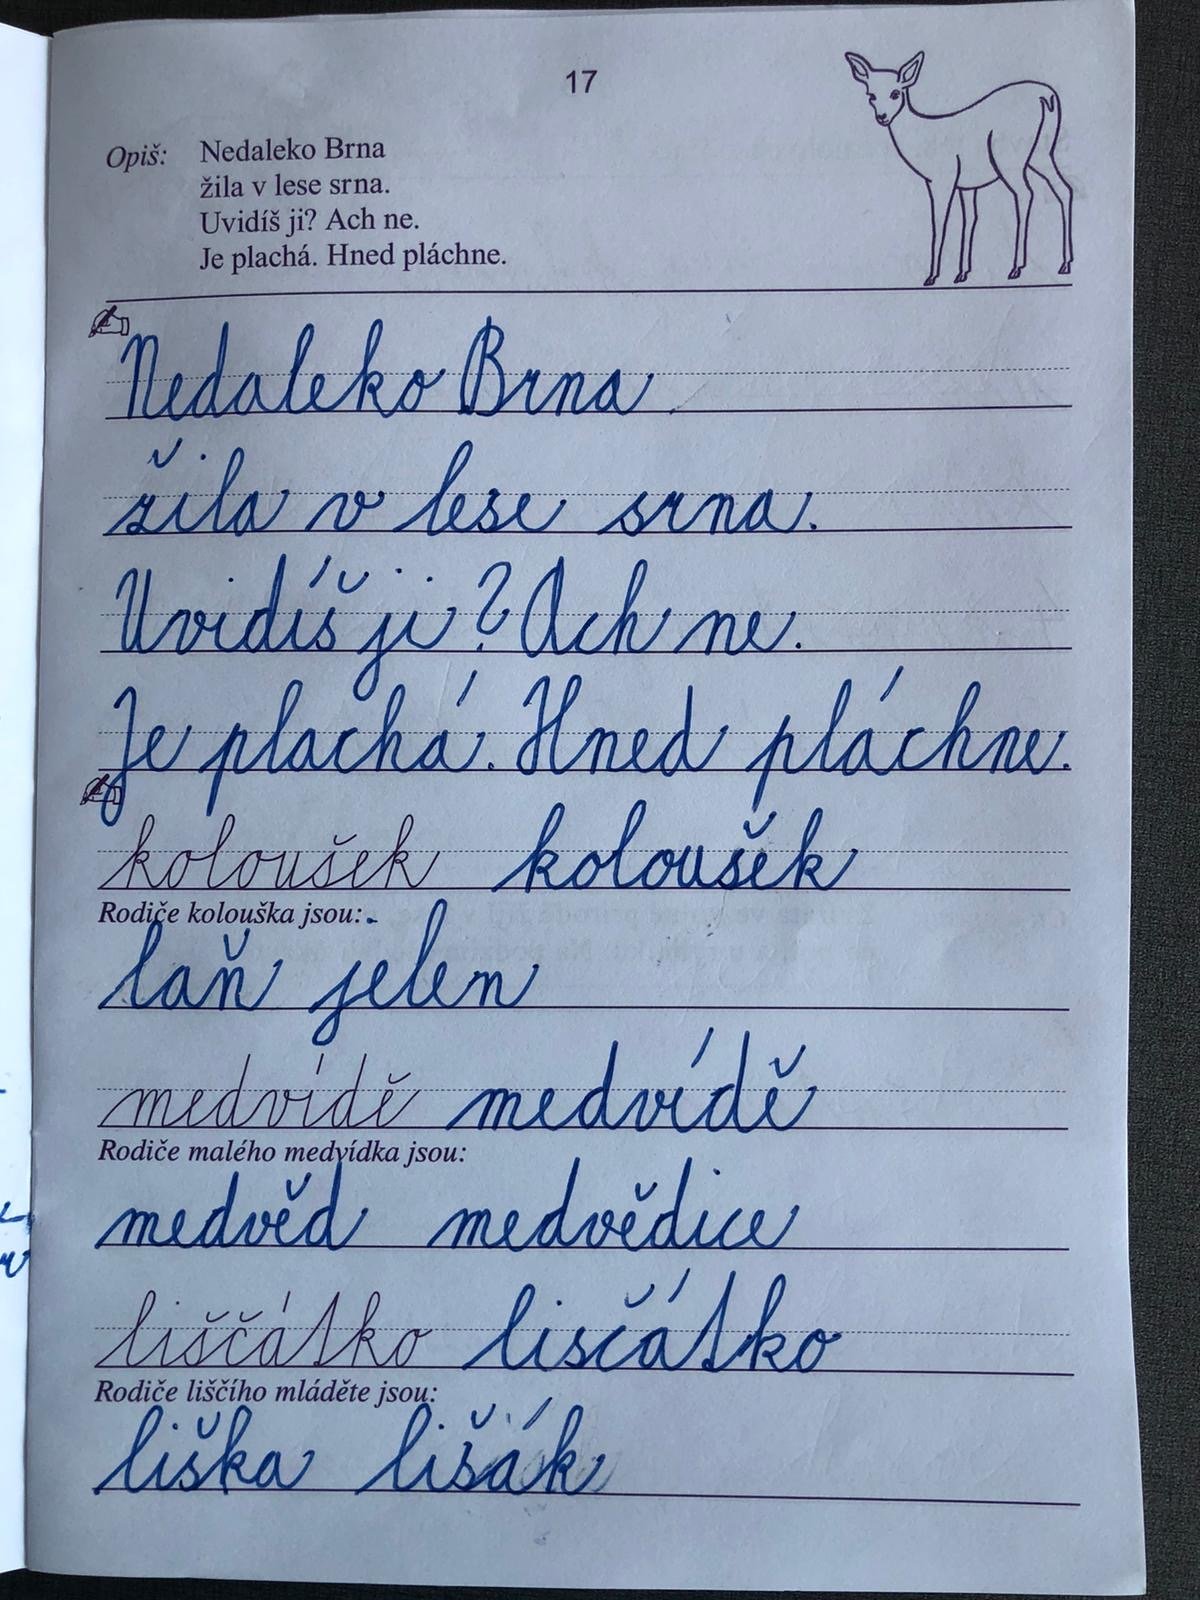 17
Opiš: Nedaleko Brna
žila v lese srna.
Uvidíš ji? Ach ne.
Je plachá. Hned pláchne.
Nedaleko Brna
žila v lese srna.
Uvidíš ji? Ach ne.
Je plachá. Hned pláchne.
koloušek koloušek
Rodiče kolouška jsou:
laň jelen
medvídě medvídě
Rodiče malého medvídka jsou:
medvěd medvědice
liščátko lisčátko
Rodiče liščího mláděte jsou:
liška lišák